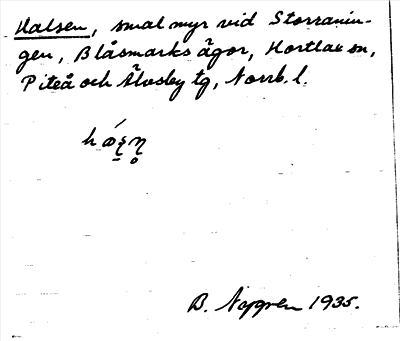 Halsen, smal myr vid Storranin-
gen, Blåsmarks ägor, Hortlax sn,
Piteå och Älvsby tg, Norrb. l.
B. Nygren 1935.